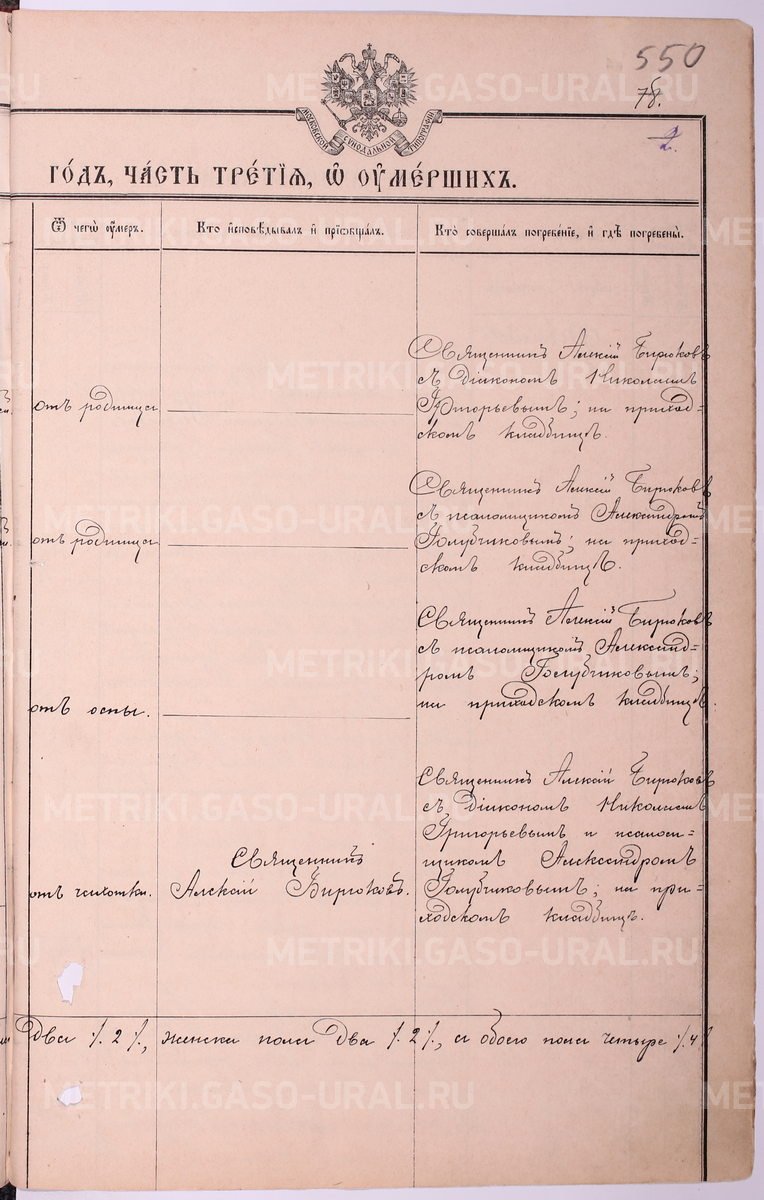 550
78.
2.
МОСКОВСКОЙ СУНОДАЛЬНОЙ ТИПОГРАФІИ
ГО́ДЪ, ЧА́СТЬ ТРЕ́ТІѦ, Ѡ҆ ОУ҆МЕ́РШИХЪ.
Ѿ чегѡ̀ оу҆́меръ.
Кто̀ и҆сповѣ́дывалъ и҆ прїѡбща́лъ.
Кто̀ соверша́лъ погребе́нїе, и҆ гдѣ̀ погребены̀.
отъ родимца
Священникъ Алексій Бирюковъ
съ діакономъ Николаемъ
Григорьевымъ; на приход-
скомъ кладбищѣ.
отъ родимца
Священникъ Алексій Бирюковъ
съ псаломщикомъ Александромъ
Голубчиковымъ; на приход-
скомъ кладбищѣ.
отъ оспы.
Священникъ Алексій Бирюковъ
съ псаломщикомъ Александ-
ромъ Голубчиковымъ;
на приходскомъ кладбищѣ.
отъ чахотки.
Священникъ
Алексій Бирюковъ.
Священникъ Алексій Бирюковъ
съ діакономъ Николаемъ
Григорьевымъ и псалом-
щикомъ Александромъ
Голубчиковымъ; на при-
ходскомъ кладбищѣ.
два /. 2 /., женска пола два /. 2 /., а обоего пола четыре /. 4 /
METRIKI.GASO-URAL.RU